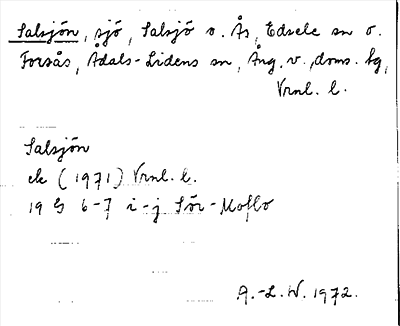 Salsjön, sjö, Salsjö o. Ås, Edsele sn o.
Forsås, Ådals-Lidens sn, Ång. v., doms. sg,
Vrnl. l.
Salsjön
ek (1971) Vrnl. l.
19 G 6-7 i-j Sör-Moflo
A.-L. W. 1972.